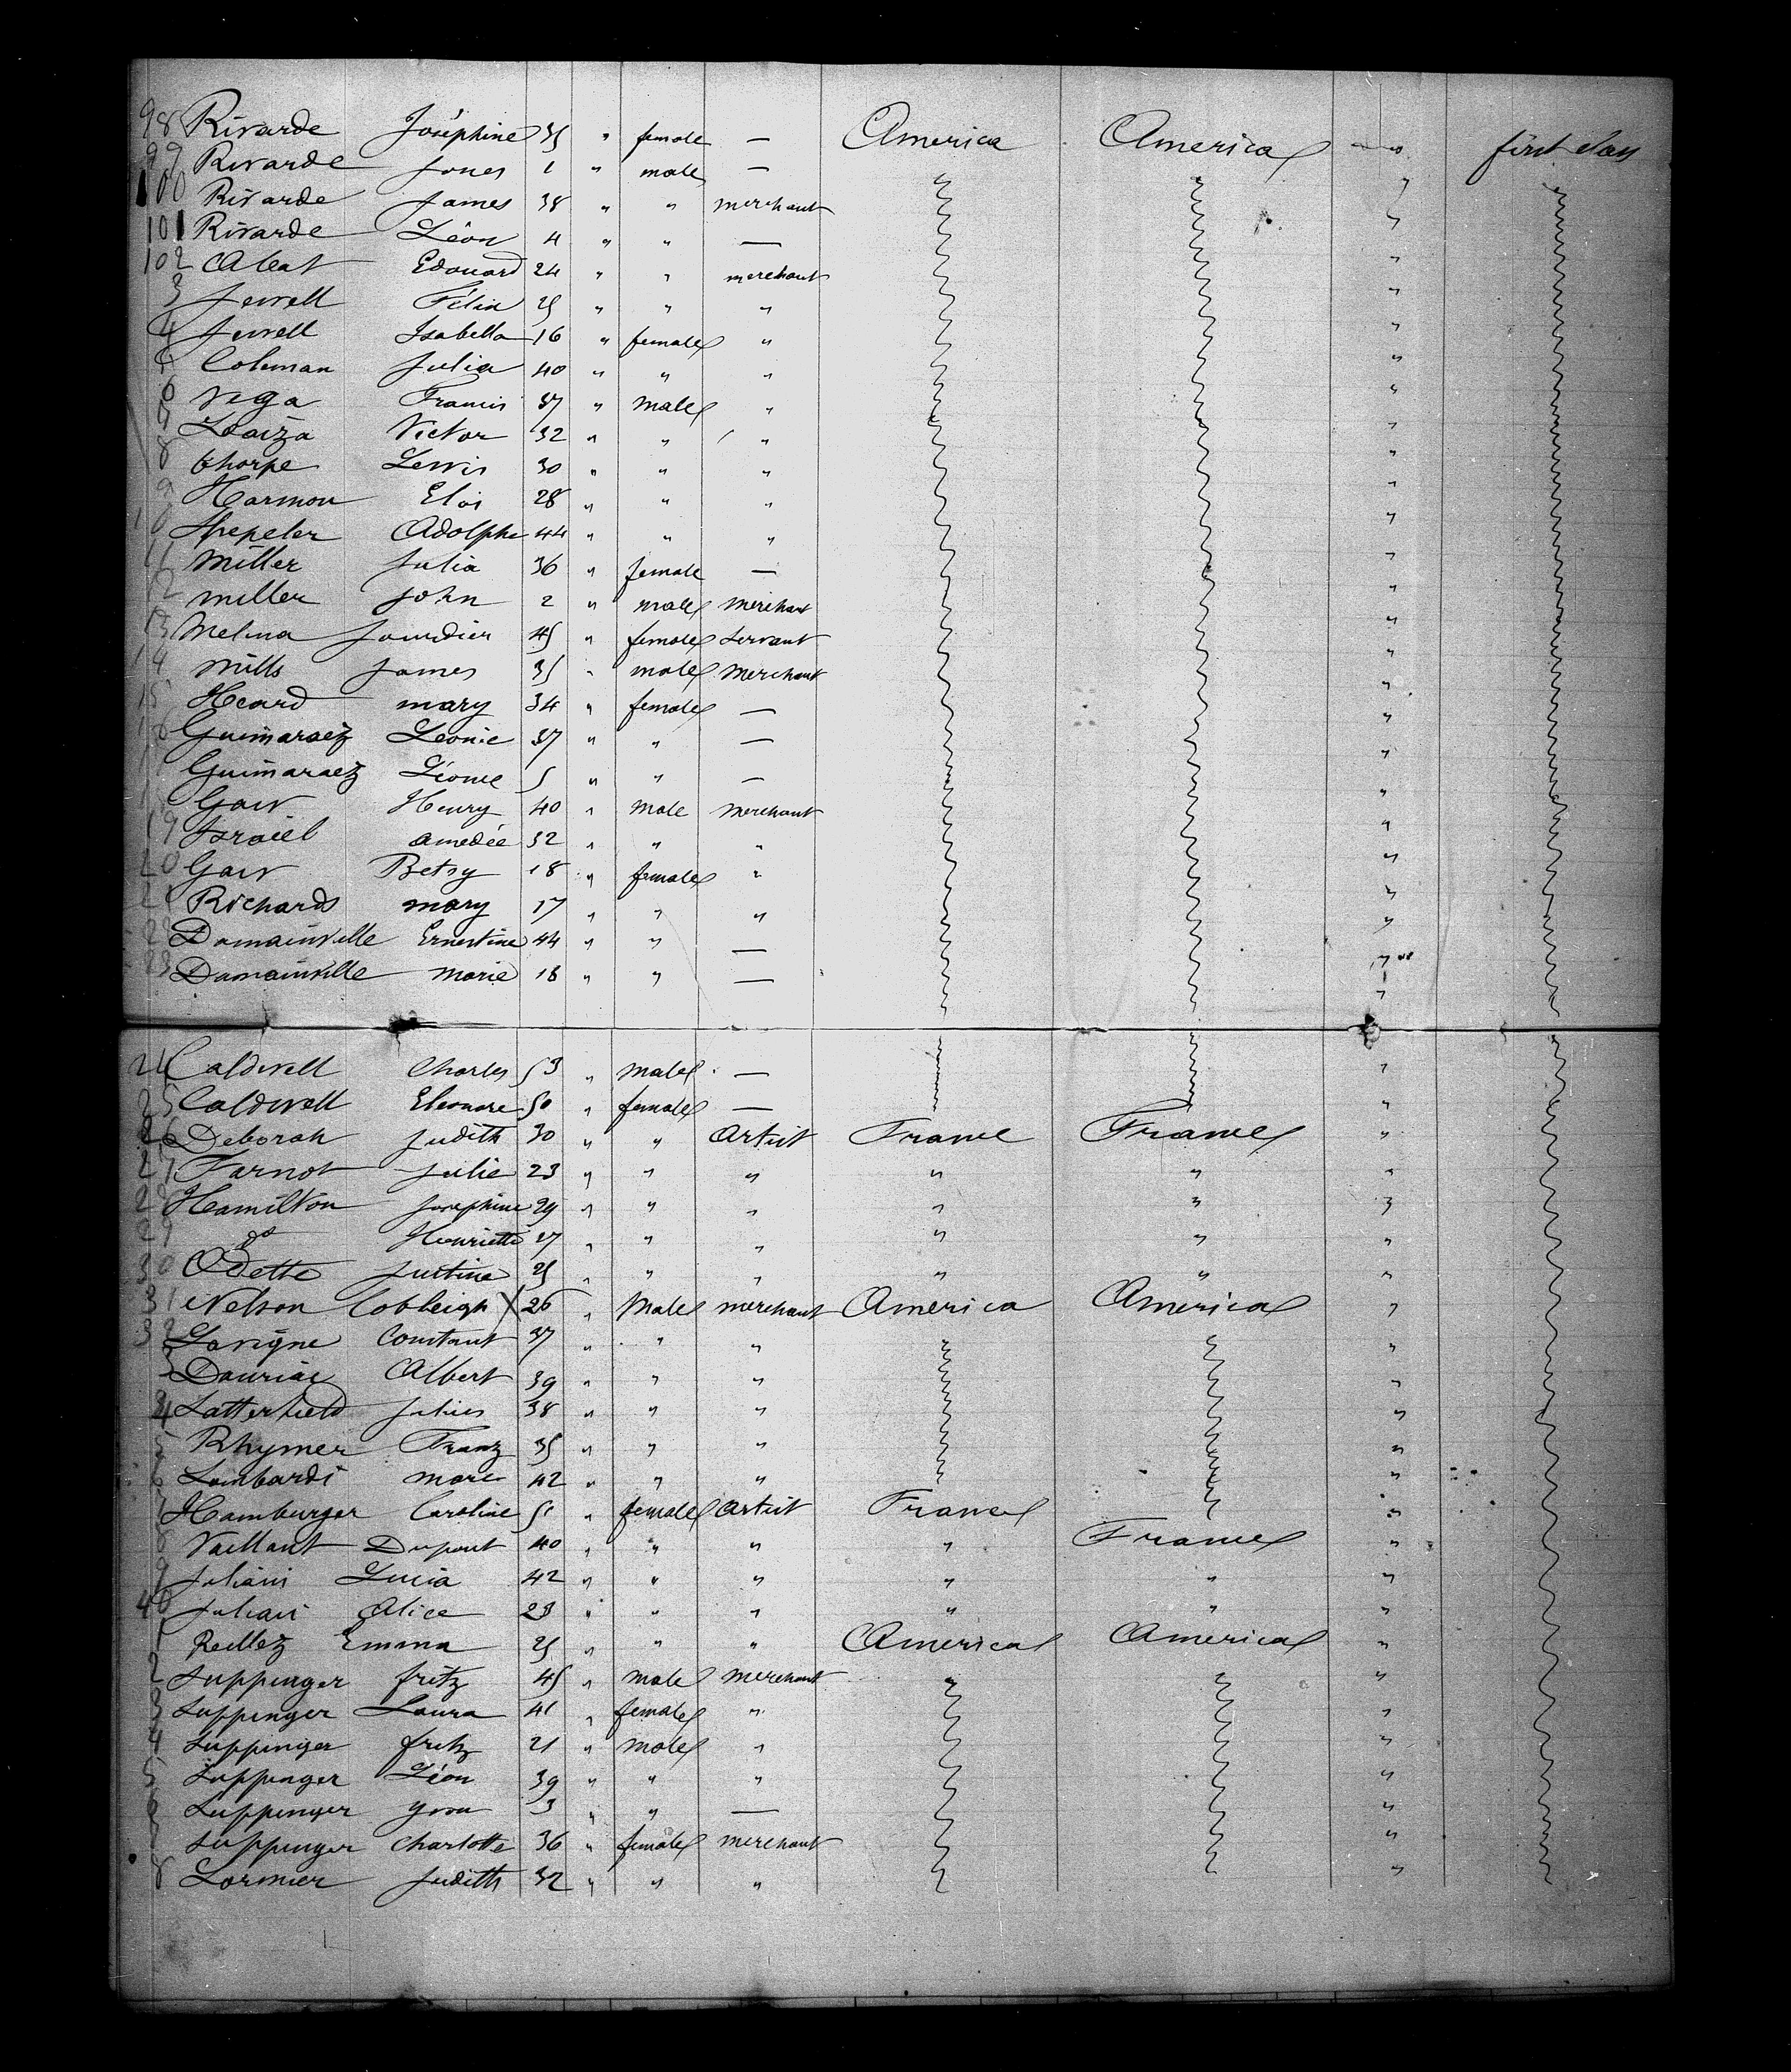 98 Rivarde Joséphine 35 " female — America America — first class
99 Rivarde Jones 1 " male — "
100 Rivarde James 38 " " merchant "
101 Rivarde Léon 4 " " — "
102 Abeat Edouard 24 " " merchant "
3 Jewell Félix 25 " " " "
4 Jewell Isabella 16 " female " "
5 Coleman Julia 40 " " " "
6 Vega Francis 37 " male " "
7 Loaiza Victor 32 " " " "
8 thorpe Lewis 30 " " " "
9 Harmon Eloi 28 " " " "
10 Adolphe 44 " " " "
11 Miller Julia 36 " female — "
12 miller John 2 " male merchant "
13 Melina Jourdier 45 " female servant "
14 Mills James 35 " male merchant "
15 Heard mary 34 " female — "
16 Guimaraez Leonie 37 " " — "
Guimaraez Léonie 5 " " —
Gair Henry 40 " male merchant "
19 Israiel amedée 32 " " " "
20 Gair Betsy 18 " female " "
21 Richards mary 17 " " " "
22 Domainville Ernestine 44 " " — "
23 Domainville marie 18 " " — "
24 Caldwell Charles 53 " male — "
25 Caldwell Eleonore 50 " female — "
26 Deborah Judith 30 " " artist France France "
27 Farnot Julie 23 " " " " " "
28 Hamilton Josephine 29 " " " " " "
29 do Henriette 27 " " " " " "
30 Odette Justine 25 " " " " " "
31 Nelson Cobleigh X 26 " Male merchant America America "
32 Lavigne Constant 37 " " " "
3 Dauriac Albert 39 " " " "
34 Satterfield Julius 38 " " " "
5 Rhymer Franz 35 " " " "
6 Lombardi marc 42 " " " "
7 Hamburger Caroline 51 " female artist France "
8 Vaillant Dupont 40 " " " " France "
9 Juliani Lucia 42 " " " " " "
40 Juliani Alice 23 " " " " " "
1 Emma 25 " " " America America "
2 Suppenger fritz 45 " male merchant " " "
3 Suppenger Laura 41 " female " "
4 Suppenger fritz 21 " male " "
5 Suppenger Léon 39 " " " "
6 Suppenger 3 " " — "
Suppenger charlotte 36 " female merchant "
8 Lormier Judith 32 " " " "